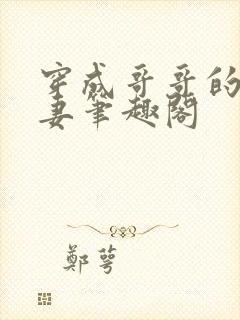 穿成哥哥的
妻笔趣阁
鄭萼